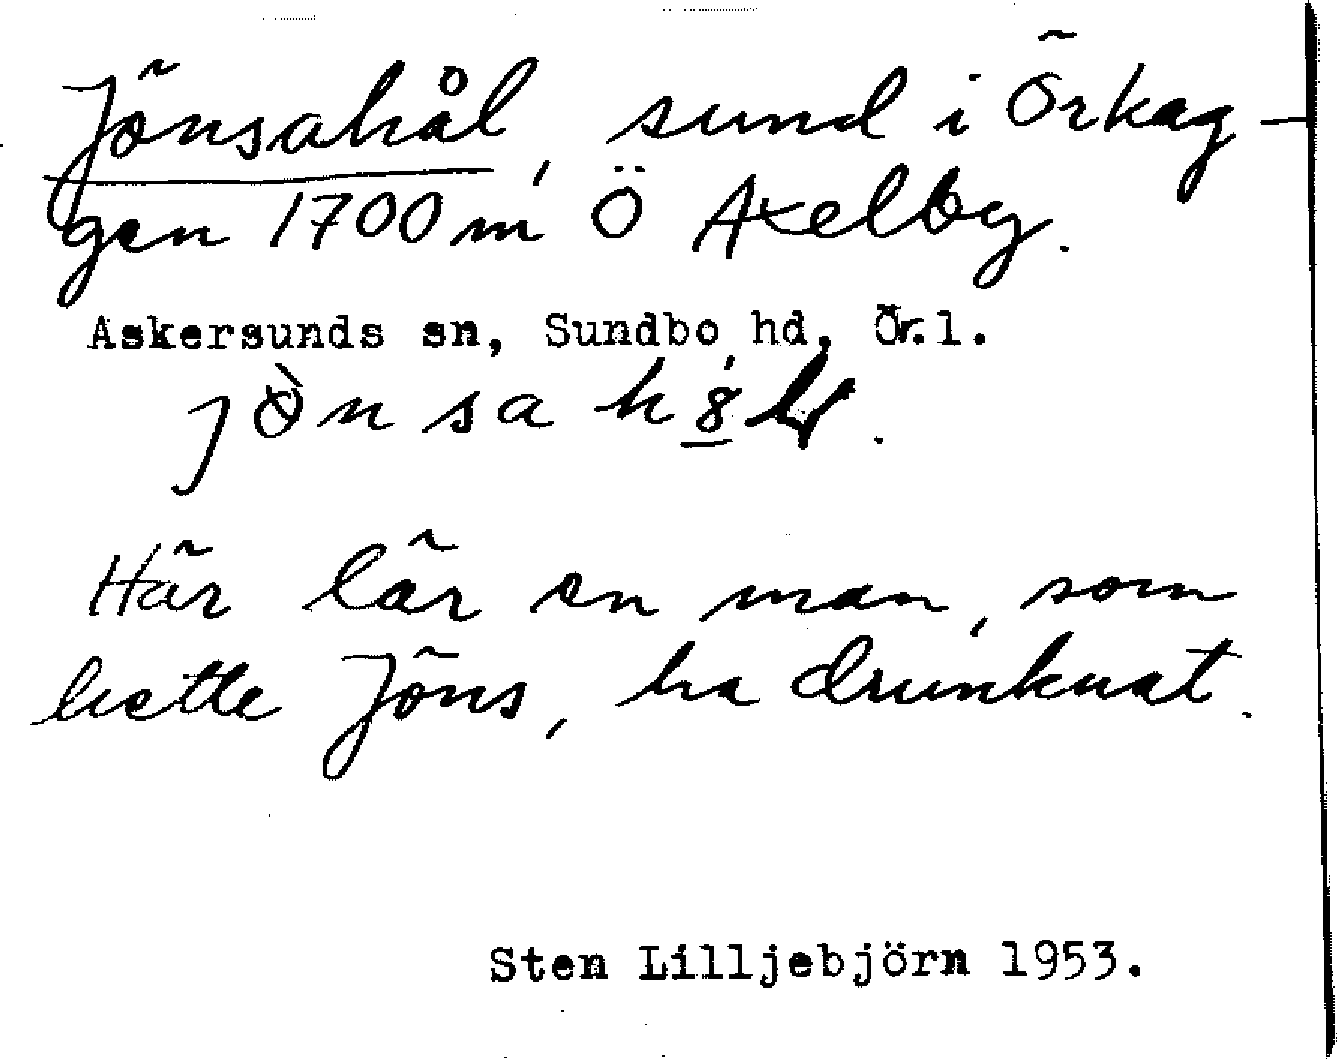 Jönsahål, sund i Örkag-
gen 1700 m Ö Axelby.
Askersunds sn, Sundbo hd, Ör.l.
Här lär en man, som
hette Jöns, ha drunknat.
Sten Lilljebjörn 1953.